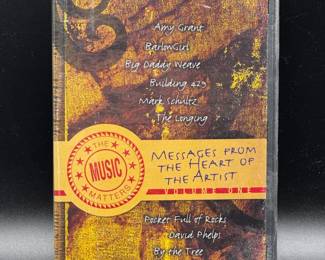 Amy Grant
BarlowGirl
Big Daddy Weave
Building 429
Mark Schultz
The Longing
THE
MUSIC
MATTERS
MESSAGES FROM
THE HEART OF
THE ARTIST
VOLUME ONE
Pocket Full of Rocks
David Phelps
By the Tree